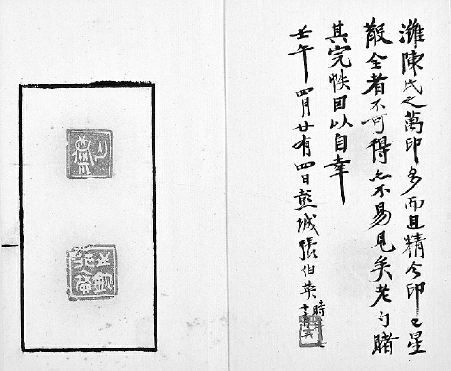 濰陳氏之萬印多而且精今印已星
散全者不可得亦不易見矣老睹
其完帙因以自幸
壬午四月廿有四日彭城張伯英時